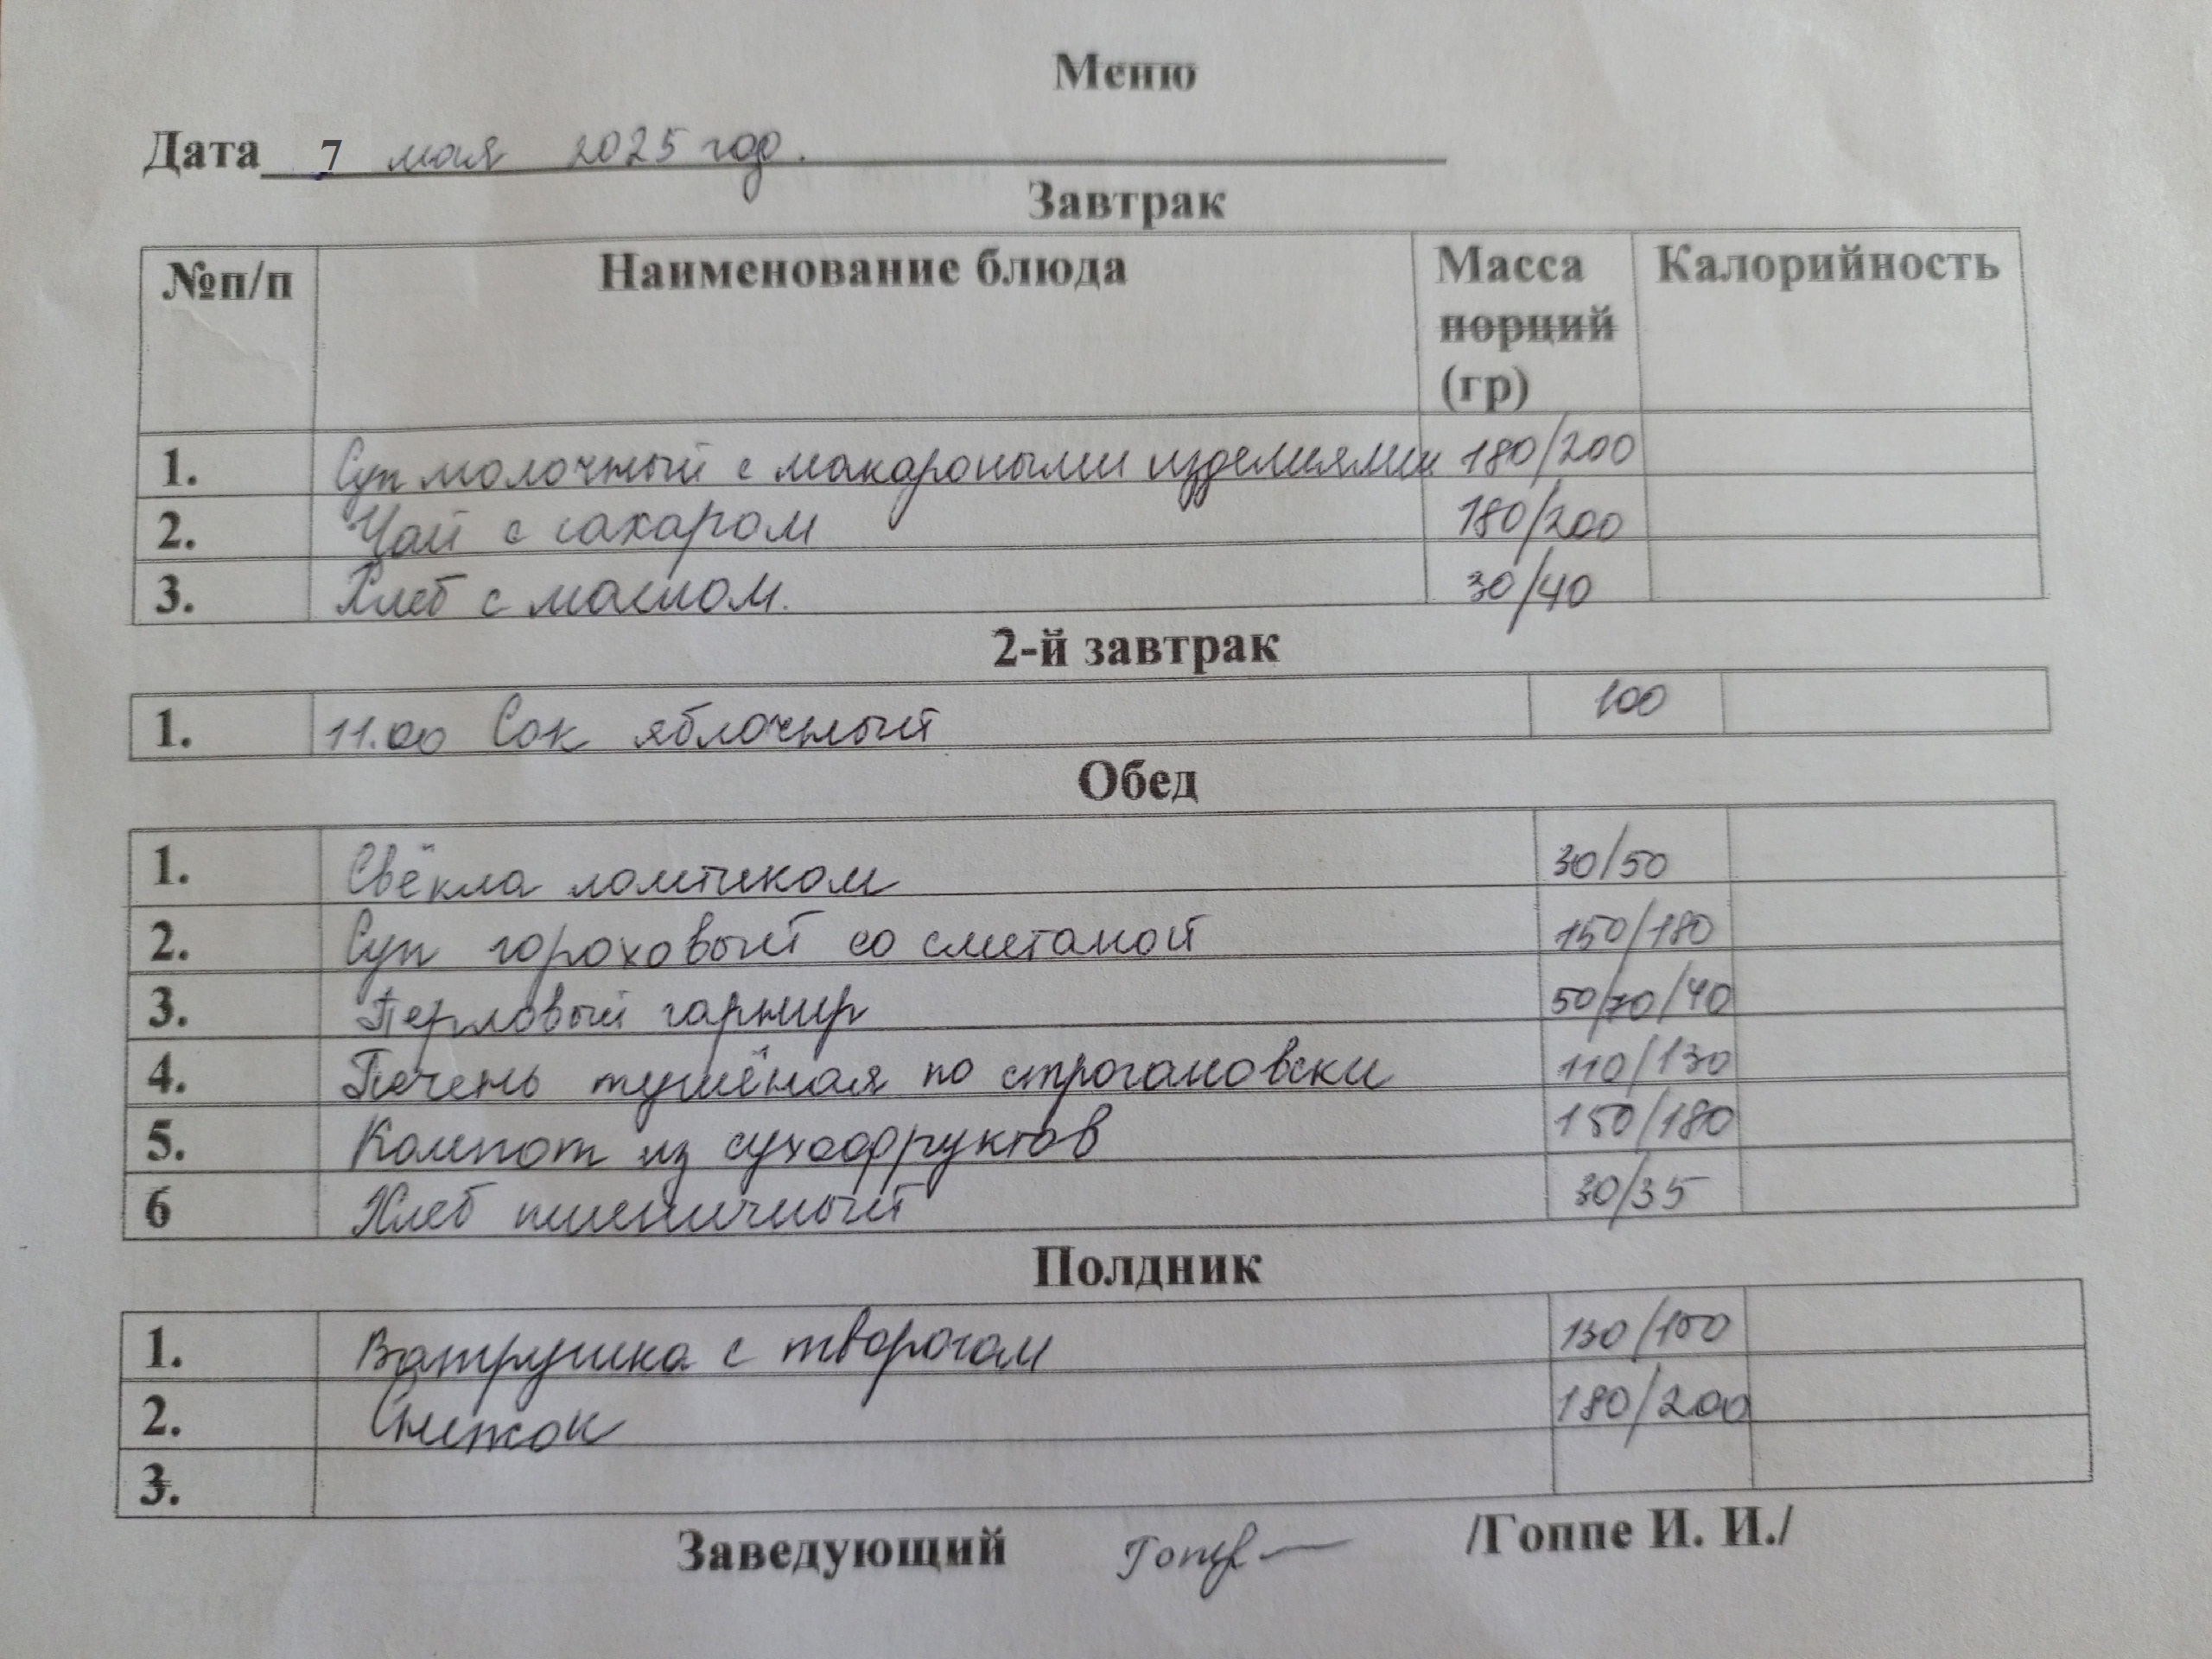 Меню
Дата 7 мая 2025 год.
Завтрак
№п/п Наименование блюда Масса порций (гр) Калорийность
1. Суп молочный с макароными изделиями 180/200
2. Чай с сахаром 180/200
3. Хлеб с маслом. 30/40
2-й завтрак
1. 11.00 Сок яблочный 100
Обед
1. Свёкла ломтиком 30/50
2. Суп гороховый со сметаной 150/180
3. Перловый гарнир 50/70/40
4. Печень тушёная по строгановски 110/130
5. Компот из сухофруктов 150/180
6 Хлеб пшеничный 30/35
Полдник
1. Ватрушка с творогом 130/150
2. Снежок 180/200
3.
Заведующий /Гоппе И. И./